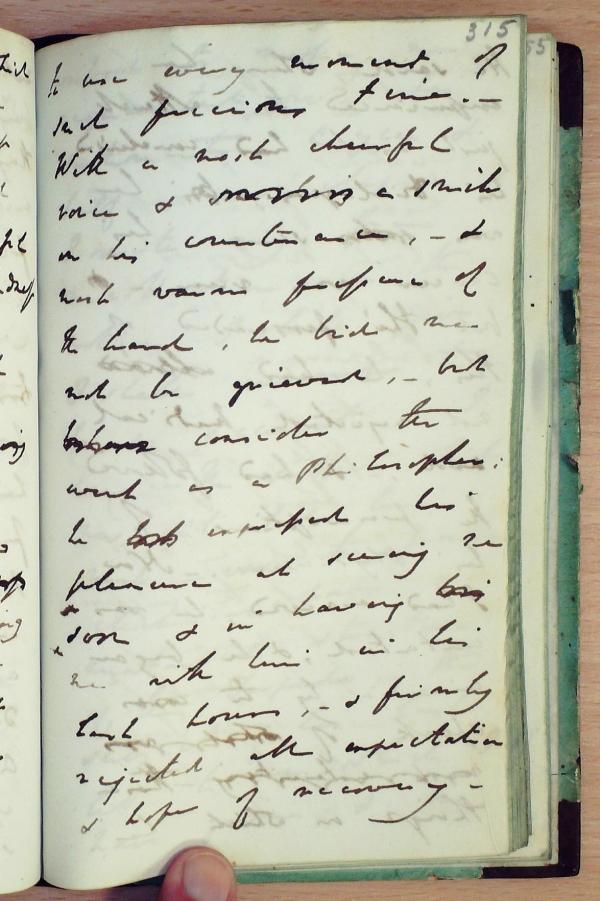 315
55
to use every moment of
such precious time. —
With a most chearful
voice & a smile
on his countenance, — &
most warm pressure of
the hand, he bid me
not be grieved, — but
consider the
event as a Philosopher:
he expressed his
pleasure at seeing me
soon & in having
me with him in his
last hours, — & firmly
rejected all expectation
& hope of recovery —